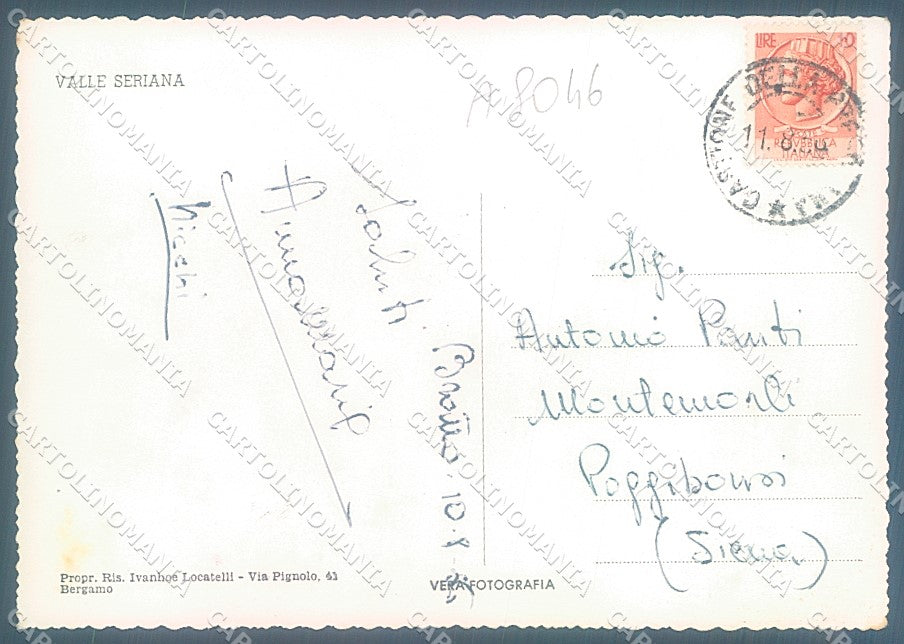 VALLE SERIANA
A 8046
LIRE 10
REPVBBLICA
ITALIANA
CASTIONE DELLA PRESOLANA
11.8.
Saluti
Bratto 10.8.
Nicchi
Sig.
Antonio Panti
Montemorli
Poggibonsi
(Siena)
Propr. Ris. Ivanhoe Locatelli - Via Pignolo, 41
Bergamo
VERA FOTOGRAFIA
CARTOLINOMANIA